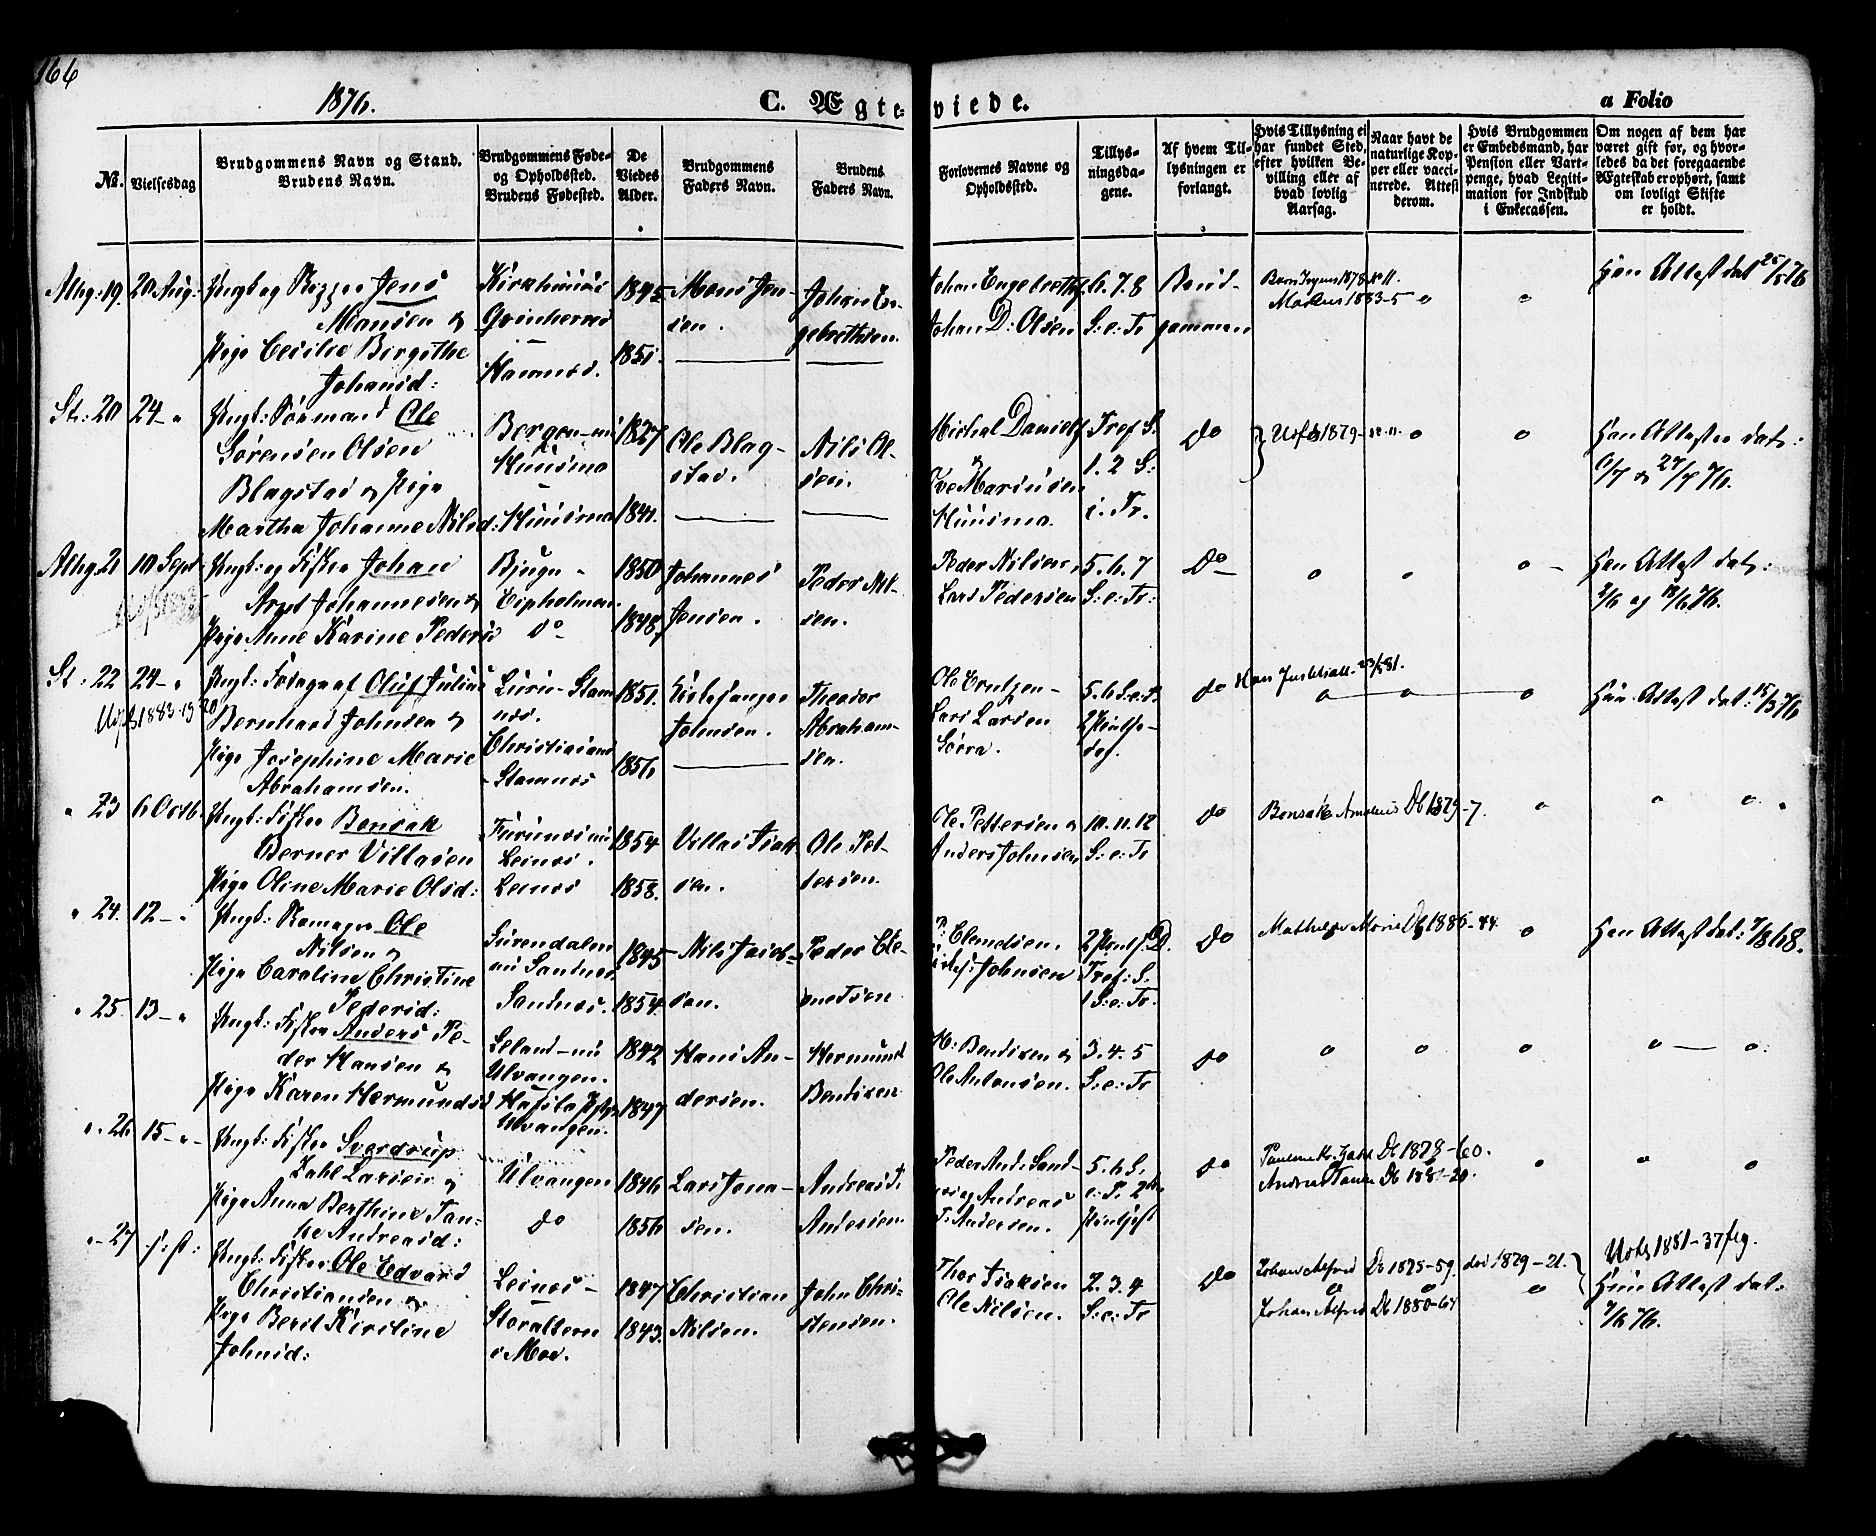 166
1876.
C. Ægte-
viede.
a Folio
No.
Vielsesdag
Brudgommens Navn og Stand.
Brudens Navn.
Brudgommens Føde-
og Opholdssted.
Brudens Fødested.
De
Viedes
Alder.
Brudgommens
Faders Navn.
Brudens
Faders Navn.
Forlovernes Navne og
Opholdssted.
Tillys-
ningsda-
gene.
Af hvem Til-
lysningen er
forlangt.
Hvis Tillysning ei
har fundet Sted,
efter hvilken Be-
villing eller af
hvad lovlig
Aarsag.
Naar havt de
naturlige Kop-
per eller vacci-
nerede. Attest
derom.
Hvis Brudgommen
er Embedsmand, har
Pension eller Vart-
penge, hvad Legiti-
mation for Indskud
i Enkecassen.
Om nogen af dem har
været gift før, og hvor-
ledes da det foregaaende
Ægteskab er ophørt, samt
om lovligt Skifte
er holdt.
19. 20 Aug:
Jens
Monsen &
Pige Cecilie Birgithe
Johansd:
1845
1851.
Mons Jen-
sen.
Johan En-
gebrethsen.
Johan Engebretts.
Johan D: Olsen
6. 7. 8
S: e: Tr
Brud-
gommen
1878
1883-5
o
o
Han Attest dat 25/5 76
St: 20 24 - "
Ungk: Ole
Sørensen Olsen
Blagstad & Pige
Martha Johanne Nilsd:
Bergen
1827
1841.
Ole Blag-
stad.
Nils Ol-
sen.
Michal Daniels.
&
Marinsen
Tref S.
1. 2 S:
e. Tr.
Do
1879
o
o
Han Attester dat:
27/7 76.
21 10 Sept
Ungk: og Fisker Johan
Johannesen &
Pige Anne Karine Pedersd
Bjugn -
Do
1850
1848
Johannes
Jensen.
Peder Nil-
sen.
Peder Nilsen,
Lars Pedersen
5. 6. 7
S: e: Tr:
Do
o
o
o -
Han Attest dat:
St: 22 24 - "
1883-19
Ungk: Fotograf Oluf Julius
Bernhard Johnsen &
Pige Josephine Marie
Abrahamsen.
Stam-
nes.
Christiansund
- Stamnes
1851.
1856
Kirkesanger
Johnsen.
Theodor
Abraham-
sen.
Lars Larsen
5. 6 S. e. Tr
do
o
o
o
Han Attest dat: 15/3 76
" 23 6 Octb.
Ungk: Fisker Bensak
Berner Villasen
Pige Oline Marie Olsd:
Leines.
Leines
1854
1858.
Villas Isak-
sen.
Ole Pet-
tersen.
Ole Pettersen &
Anders Johnsen
10. 11. 12
S: e: Tr
do
Bensak Db 1879-7.
o
o
o
" 24. 12 - "
Ungk: Ole
Nilsen &
Pige Caroline Christine
Pedersd:
Surendalen
nu Sandnes
Sandnes.
1845
1854.
Nils
sen.
Peder Cle-
metsen
P: Clemdsen.
Johnsen
Tref: S.
1 S: e: Tr.
Do
Marie Db 1886-44
o
Han Attest dat: 7/8 68.
" 25 13 - "
Ungk: Fisker Anders Pe-
der Hansen &
Pige Karen Hermundsd
Leland - nu
Ulvangen.
Ulvangen.
1842
1847
Hans An-
dersen.
Hermund
Bentsen
H: Bendixen &
Ole Antonsen.
3. 4. 5
S: e: Tr
do
o
o
o
o - o.
" 26 15 - "
Ungk: Fisker Sverdrup
Zahl Larsen &
Pige Anna Berthine Tan-
ke Andreasd:
Ulvangen
do
1846
1856
Lars Jona-
sen.
Andreas T.
Andersen.
Peder And: Sand-
nes og Andreas
T: Andersen.
5. 6 S.
e: Tr. 2den
do
Zahl Db 1878-60.
Andreas Tanke Db 1881-20.
o
o
o
" 27
Ungk: Fisker Ole Edvard
Christiansen &
Pige Berit Kirstine
Johnsd:
Leines -
Storalteren
i Moe.
1847
1843.
Christian
Nilsen.
John Chri-
stensen.
Thor Isaksen
Ole Nilsen.
2. 3. 4
S: e: Tr
Do
Johan Alfred Db 1875-59. død 1879-21.
Johan Alfred Db 1880-64
o
o
o
Udts 1881-37
Hun Attest dat:
7/6 76.